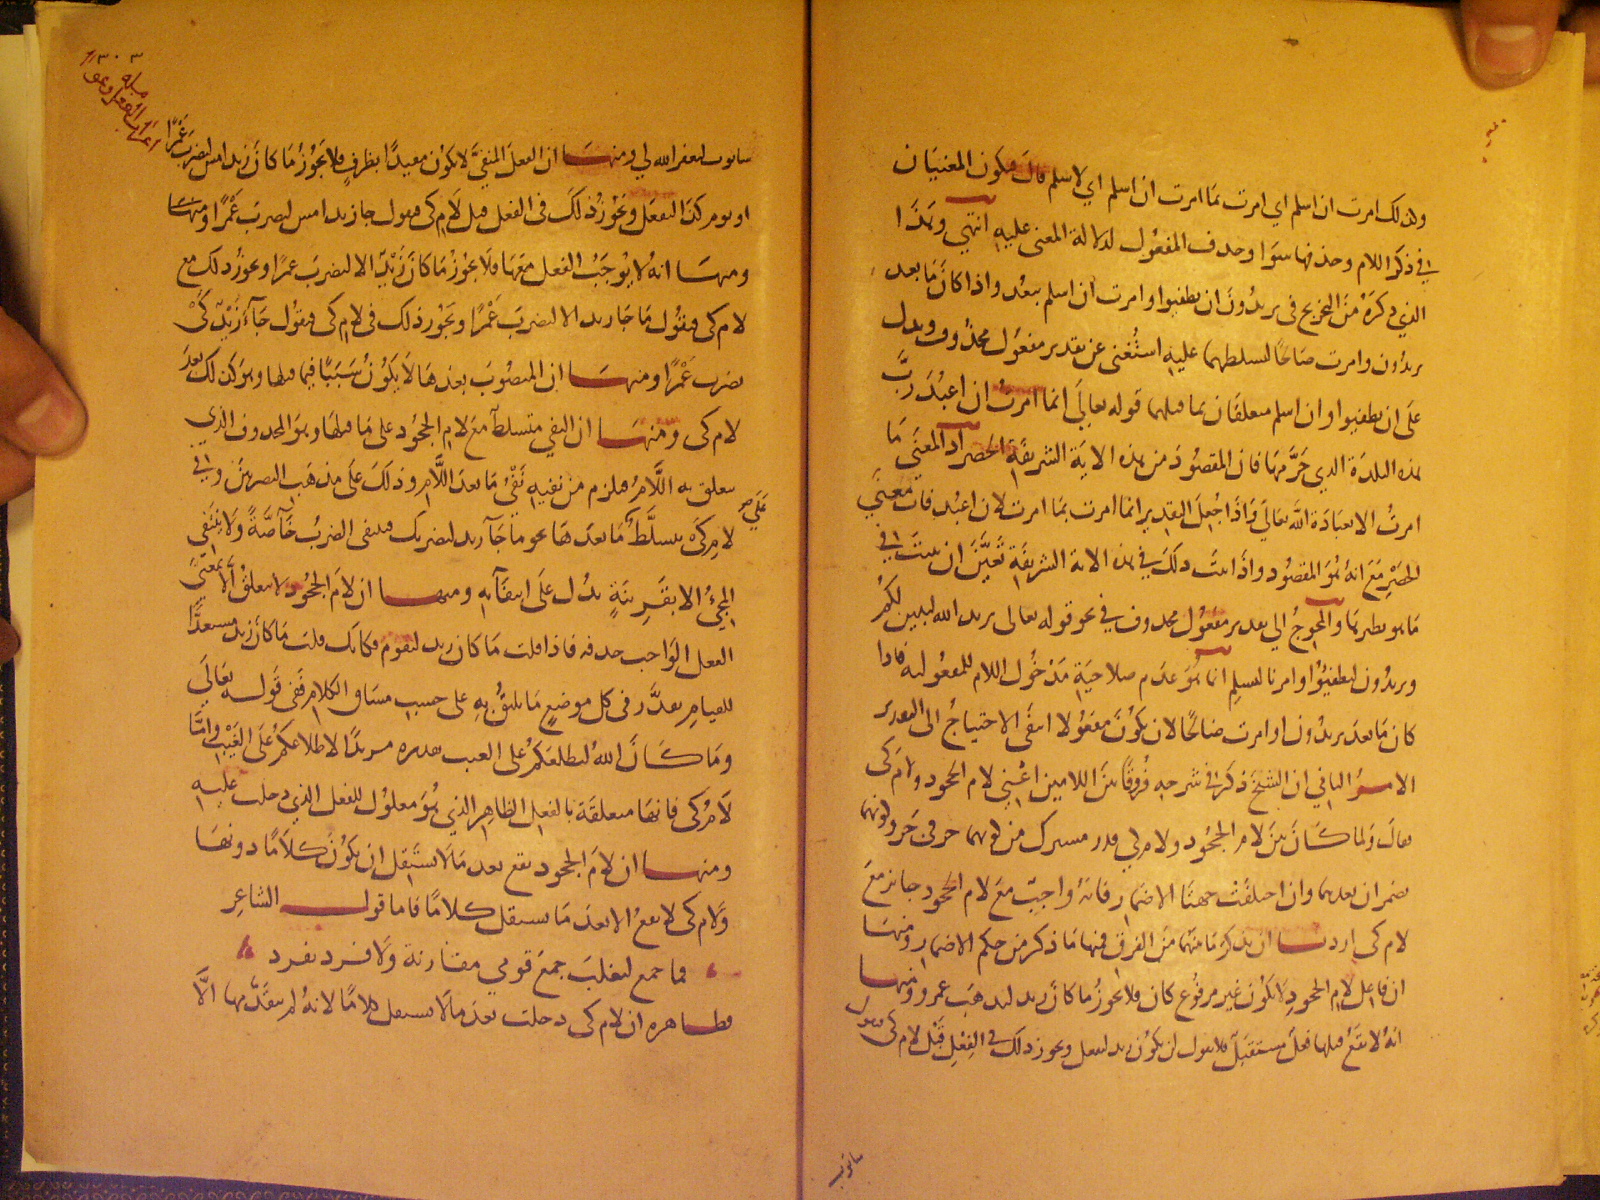 وكذلك امرت ان اسلم اي امرت بما امرت ان اسلم اي لاسلم قال فيكون المعنيان
في ذكر اللام وحذفها سوا وحذف المفعول لدلالة المعنى عليه انتهى وهذا
الذي ذكره من التخريج في يريدون ان يطفيوا وامرت ان اسلم يبعد واذا كان ما بعد
يريدون وامرت صالحا لتسلطهما عليه استغنى عن تقدير مفعول محذوف ويدل
على ان يطفيوا وان اسلم متعلقان بما قبلهما قوله تعالى انما امرت ان اعبد رب
هذه البلدة الذي حرمها فان المقصود من هذه الاية الشريفة الحصر اذ المعنى ما
امرت الا بعبادة الله تعالى واذا جعل التقدير انما امرت بما امرت لان اعبد فات معنى
الحصر مع انه هو المقصود واذا ثبت ذلك في هذه الاية الشريفة تعين ان يثبت في
ما هو نظيرها والمحوج الى تقدير مفعول محذوف في نحو قوله تعالى يريد الله ليبين لكم
ويريدون ليطفيوا وامرنا لنسلم انما هو عدم صلاحية مدخول اللام للمفعولية فاذا
كان ما بعد يريدون او امرت صالحا لان يكون مفعولا انتفى الاحتياج الى التقدير
الامر الثاني ان الشيخ ذكر في شرحه فروقا بين اللامين اعني لام الجحود ولام كي
فقال ولما كان بين لام الجحود ولام كي قدر مشترك من كونهما حرفي جر وكونهما
يضمر ان بعدهما وان اختلفت جهتا الاضمار فانه واجب مع لام الجحود جايز مع
لام كي اردنا ان نذكر ما بينهما من الفرق فمنها ما ذكر من حكم الاضمار ومنها
ان فاعل لام الجحود لا يكون غير مرفوع كان فلا يجوز ما كان زيد ليذهب عمرو ومنها
انه لا يقع قبلها فعل مستقبل فلا يقول لن يكون زيد ليفعل ويجوز ذلك في الفعل قبل لام كي فيقول
ساتوب
٣٠٣
ساتوب ليغفر الله لي ومنها ان الفعل المنفي لا يكون مقيدا بظرف فلا يجوز ما كان زيد امس ليضرب عمرا
او يوم كذا ليفعل ويجوز ذلك في الفعل قبل لام كي فيقول جا زيد امس ليضرب عمرا ومنها
ومنها انه لا يوجب الفعل معها فلا يجوز ما كان زيد الا ليضرب عمرا ويجوز ذلك مع
لام كي فيقول ما جا زيد الا ليضرب عمرا ويجوز ذلك في لام كي فيقول جآء زيد كي
يضرب عمرا ومنها ان المنصوب بعدها لا يكون سببا فيما قبلها وهو كذلك بعد
لام كي ومنها ان النفي متسلط مع لام الجحود على ما قبلها وهو المحذوف الذي
يتعلق به اللام فيلزم من نفيه نفي ما بعد اللام وذلك على مذهب البصريين وفي
لام كي يتسلط على ما بعدها نحو ما جآ زيد ليضربك فينتفي الضرب خآصة ولا ينتفي
المجيء الا بقرينة تدل على انتفآئه ومنها ان لام الجحود لا يتعلق الا بمعنى
الفعل الواجب حذفه فاذا قلت ما كان زيد ليقوم فكانك قلت ما كان زيد مستعدا
للقيام يقدر في كل موضع ما يليق به على حسب مساق الكلام ففي قوله تعالى
وما كان الله ليطلعكم على الغيب تقديره مريدا لاطلاعكم على الغيب واما
لام كي فانها متعلقة بالفعل الظاهر الذي هو معلول للفعل الذي دخلت عليه
ومنها ان لام الجحود تقع بعد ما لا يستقل ان يكون كلاما دونها
ولام كي لا تقع الا بعد ما يستقل كلاما فاما قول الشاعر
فما جمع ليغلب جمع قومي مقارنة ولا فرد بفرد
فظاهره ان لام كي دخلت بعد ما لا يستقل كلاما لانه لم يتقدمها الا